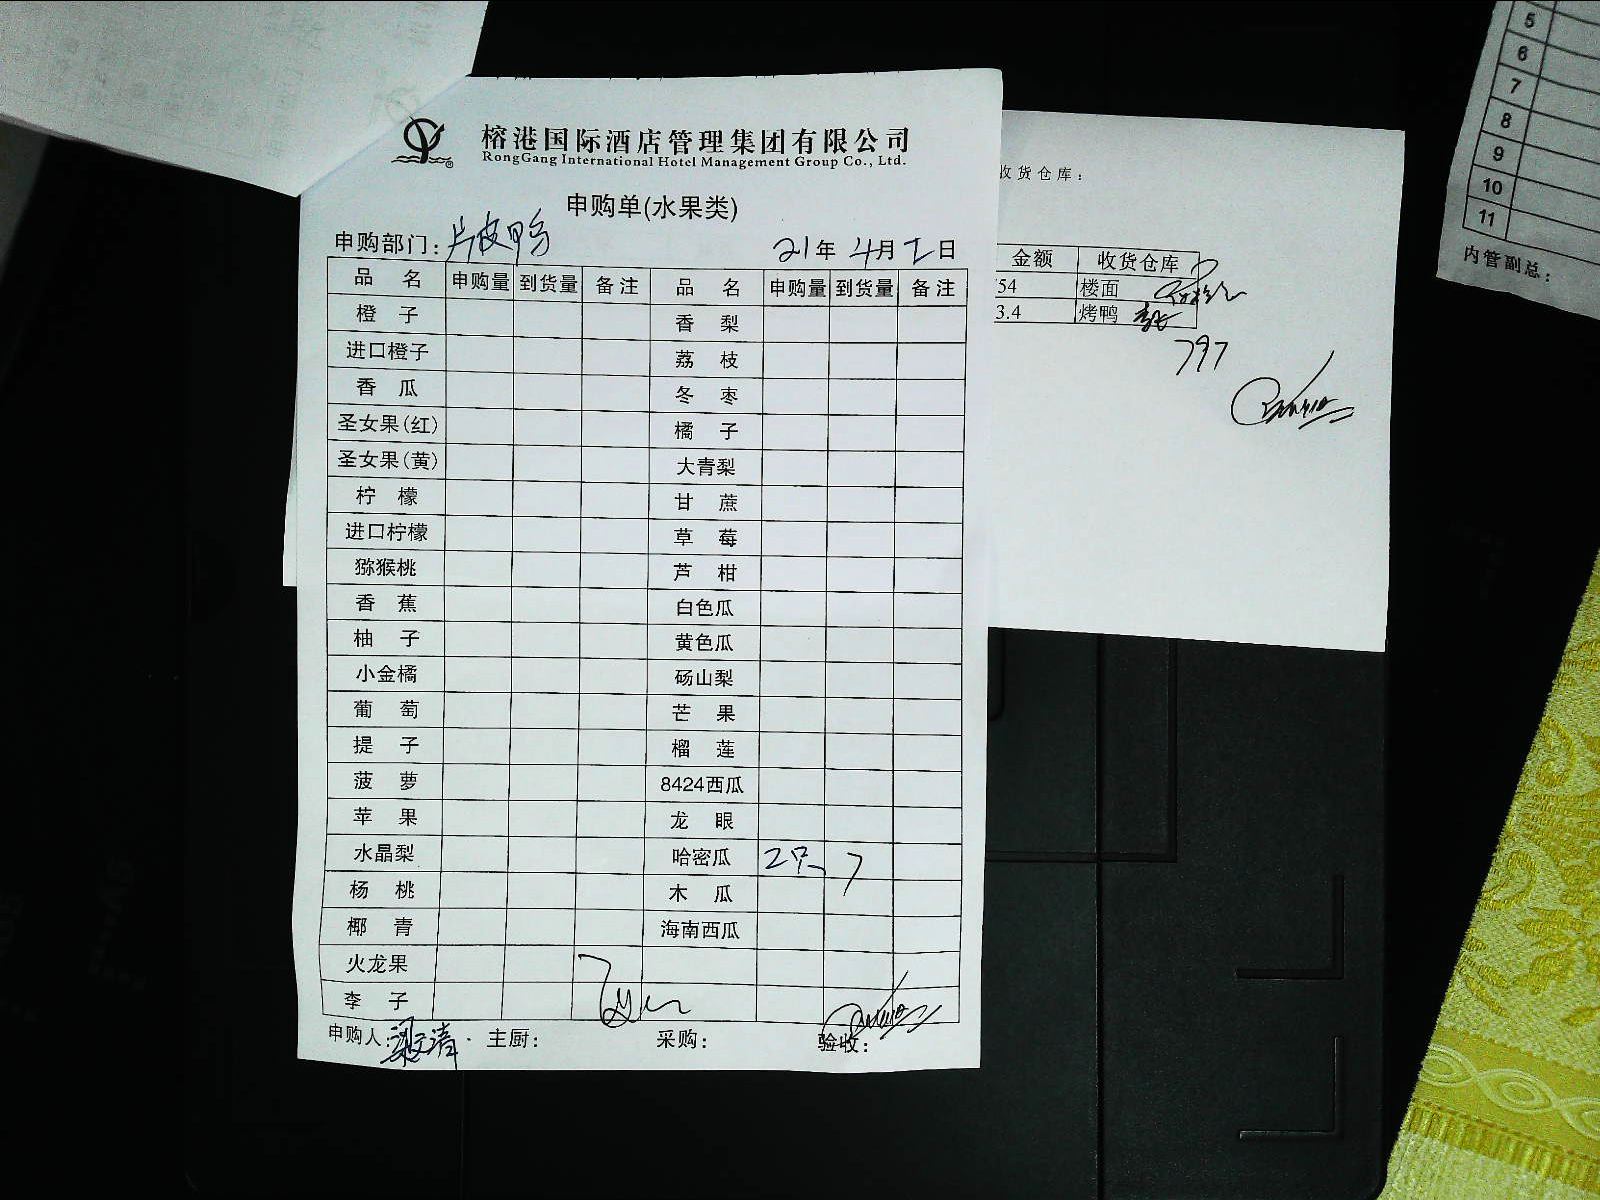 榕港国际酒店管理集团有限公司
RongGang International Hotel Management Group Co., Ltd.
申购单(水果类)
申购部门: 片皮鸭 21年 4月 日
品 名 申购量 到货量 备注 品 名 申购量 到货量 备注
橙 子 香 梨
进口橙子 荔 枝
香 瓜 冬 枣
圣女果(红) 橘 子
圣女果(黄) 大青梨
柠 檬 甘 蔗
进口柠檬 草 莓
猕猴桃 芦 柑
香 蕉 白色瓜
柚 子 黄色瓜
小金橘 砀山梨
葡 萄 芒 果
提 子 榴 莲
菠 萝 8424西瓜
苹 果 龙 眼
水晶梨 哈密瓜 2只 7
杨 桃 木 瓜
椰 青 海南西瓜
火龙果
李 子
申购人: 主厨: 采购: 验收:
收货仓库:
金额 收货仓库
54 楼面
3.4 烤鸭
797
5
6
7
8
9
10
11
内管副总: